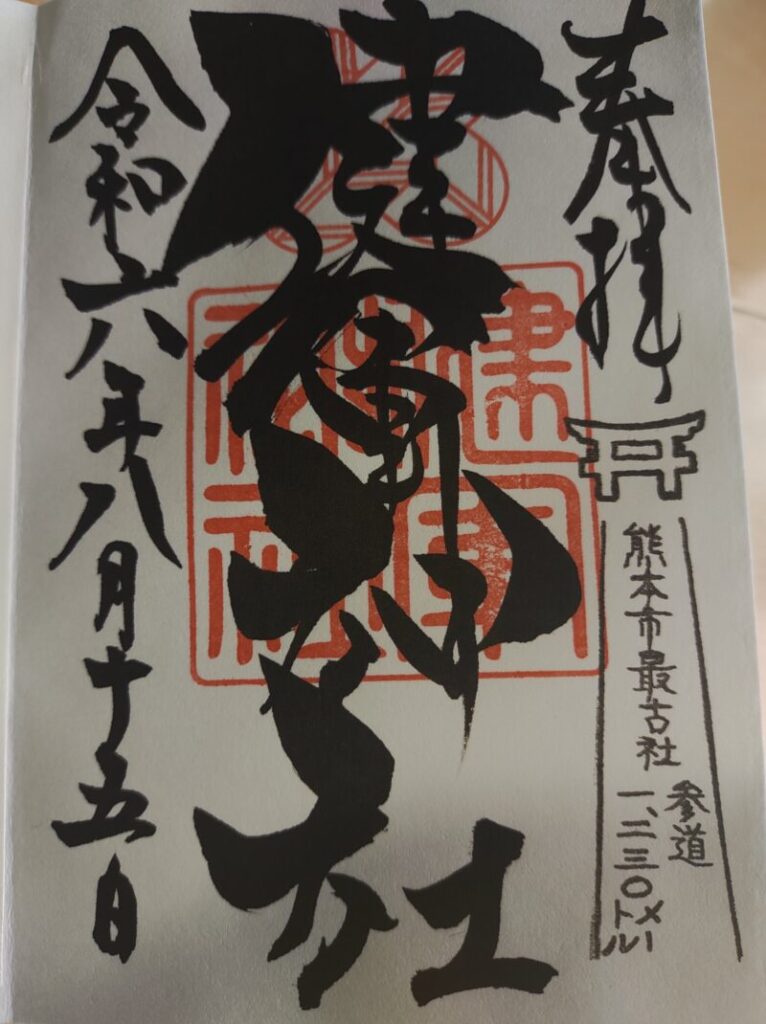 奉拝
熊本市最古社
参道
一、二三〇メートル
健軍神社
令和六年八月十五日